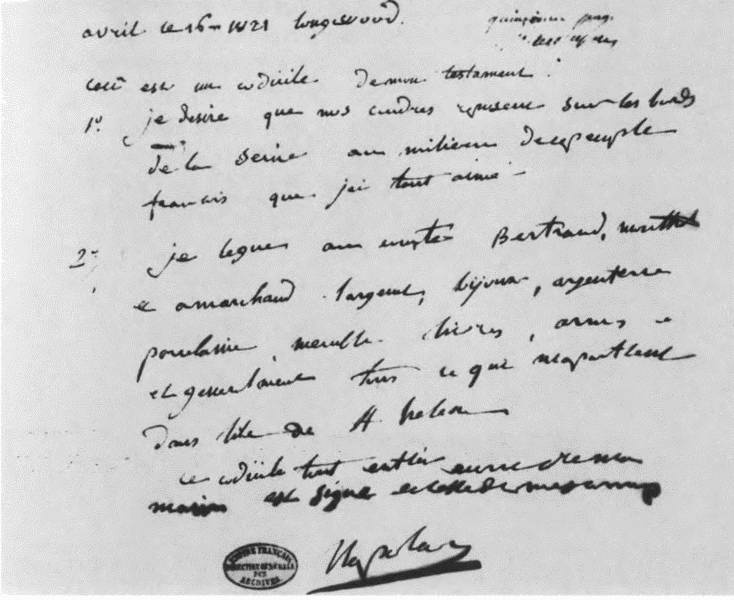 avril le 16 1821 longwood.
ceci est un codicile de mon testament.
1° je desire que mes cendres reposent sur les bords
de la Seine au milieu de ce peuple
francais que j'ai tant aimé
2° je legue au comte Bertrand, montholon
et a marchand l'argent, bijoux, argenterie
porcelaine, meuble livres, armes
et generalement tous ce qui m'apartient
dans l'ile de St helene
ce codicile tout entier ecrit de ma
main est signé et de mes armes
Napoleon
EMPIRE FRANÇAIS
DIRECTION GENERALE
DES
ARCHIVES